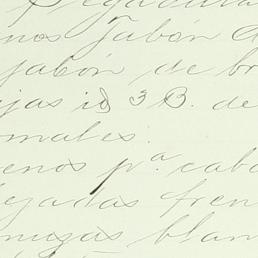 nos Jabón
jabón de br
jas id 3 B. de
omales.
enos p.ª cab
lejadas fren
muzas blan